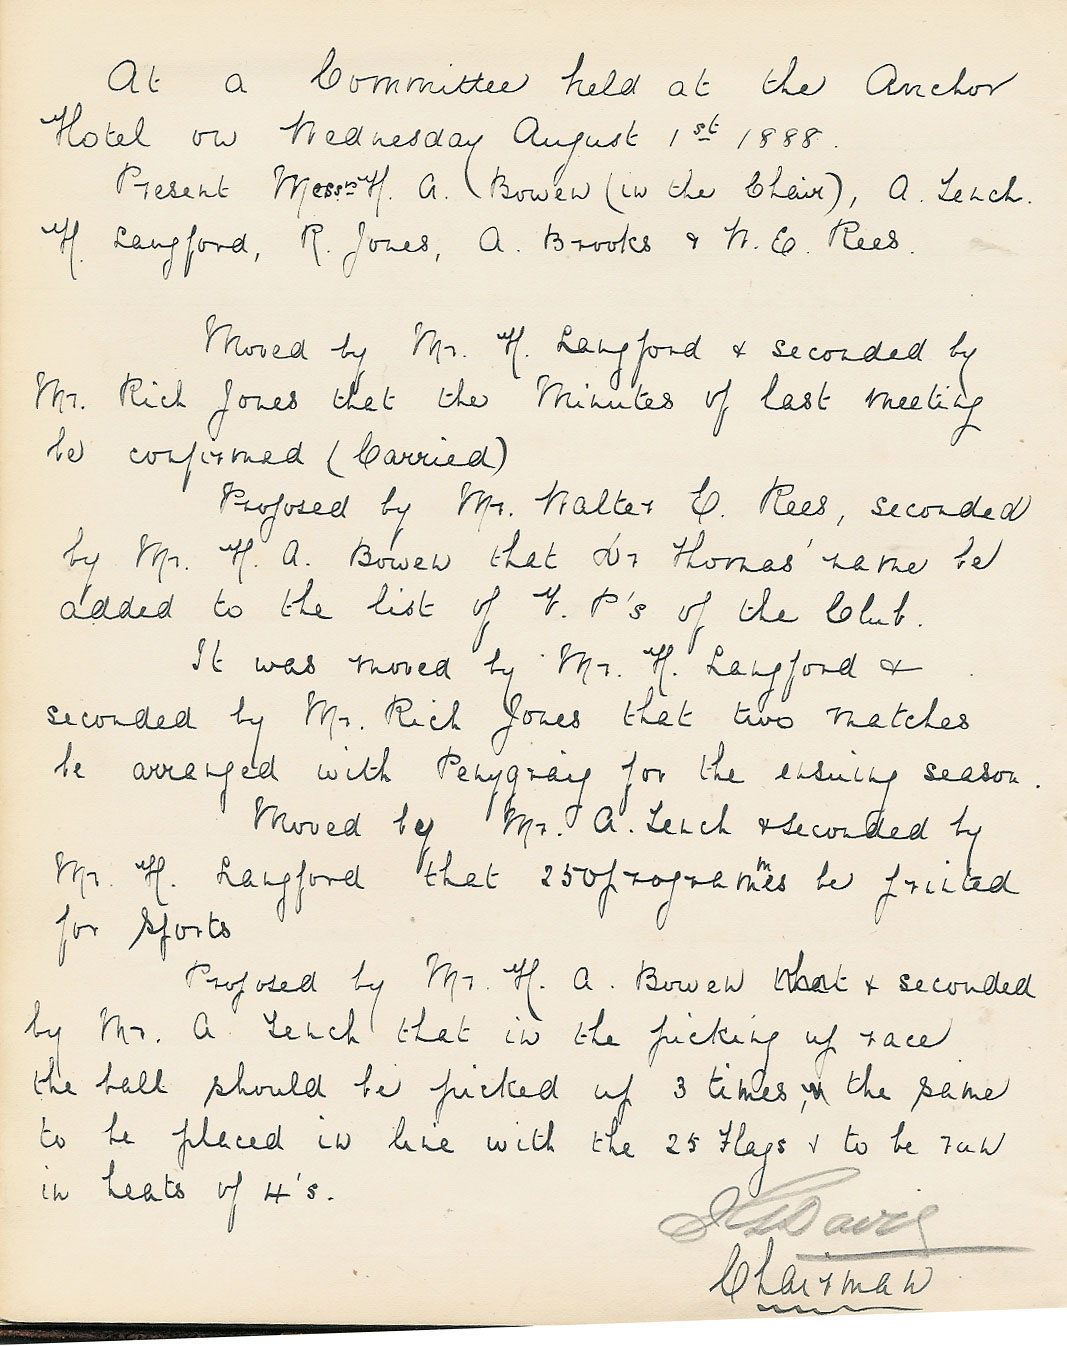 At a Committee held at the Anchor
Hotel on Wednesday August 1st 1888.
Present Messrs H. A. Bowen (in the Chair), A. Lench.
H. Langford, R. Jones, A. Brooks & W. E. Rees.
Moved by Mr. H. Langford & seconded by
Mr. Rich Jones that the Minutes of last meeting
be confirmed (Carried)
Proposed by Mr. Walter E. Rees, seconded
by Mr. H. A. Bowen that Dr Thomas' name be
added to the list of V. P's of the Club.
It was moved by Mr. H. Langford &
seconded by Mr. Rich Jones that two matches
be arranged with Penygraig for the ensuing season.
Moved by Mr. A. Lench & seconded by
Mr. H. Langford that 250 programmes be printed
for Sports
Proposed by Mr. H. A. Bowen that & seconded
by Mr. A Lench that in the picking up race
the ball should be picked up 3 times, & the same
to be placed in line with the 25 Flags & to be run
in heats of 4's.
Davis
Chairman